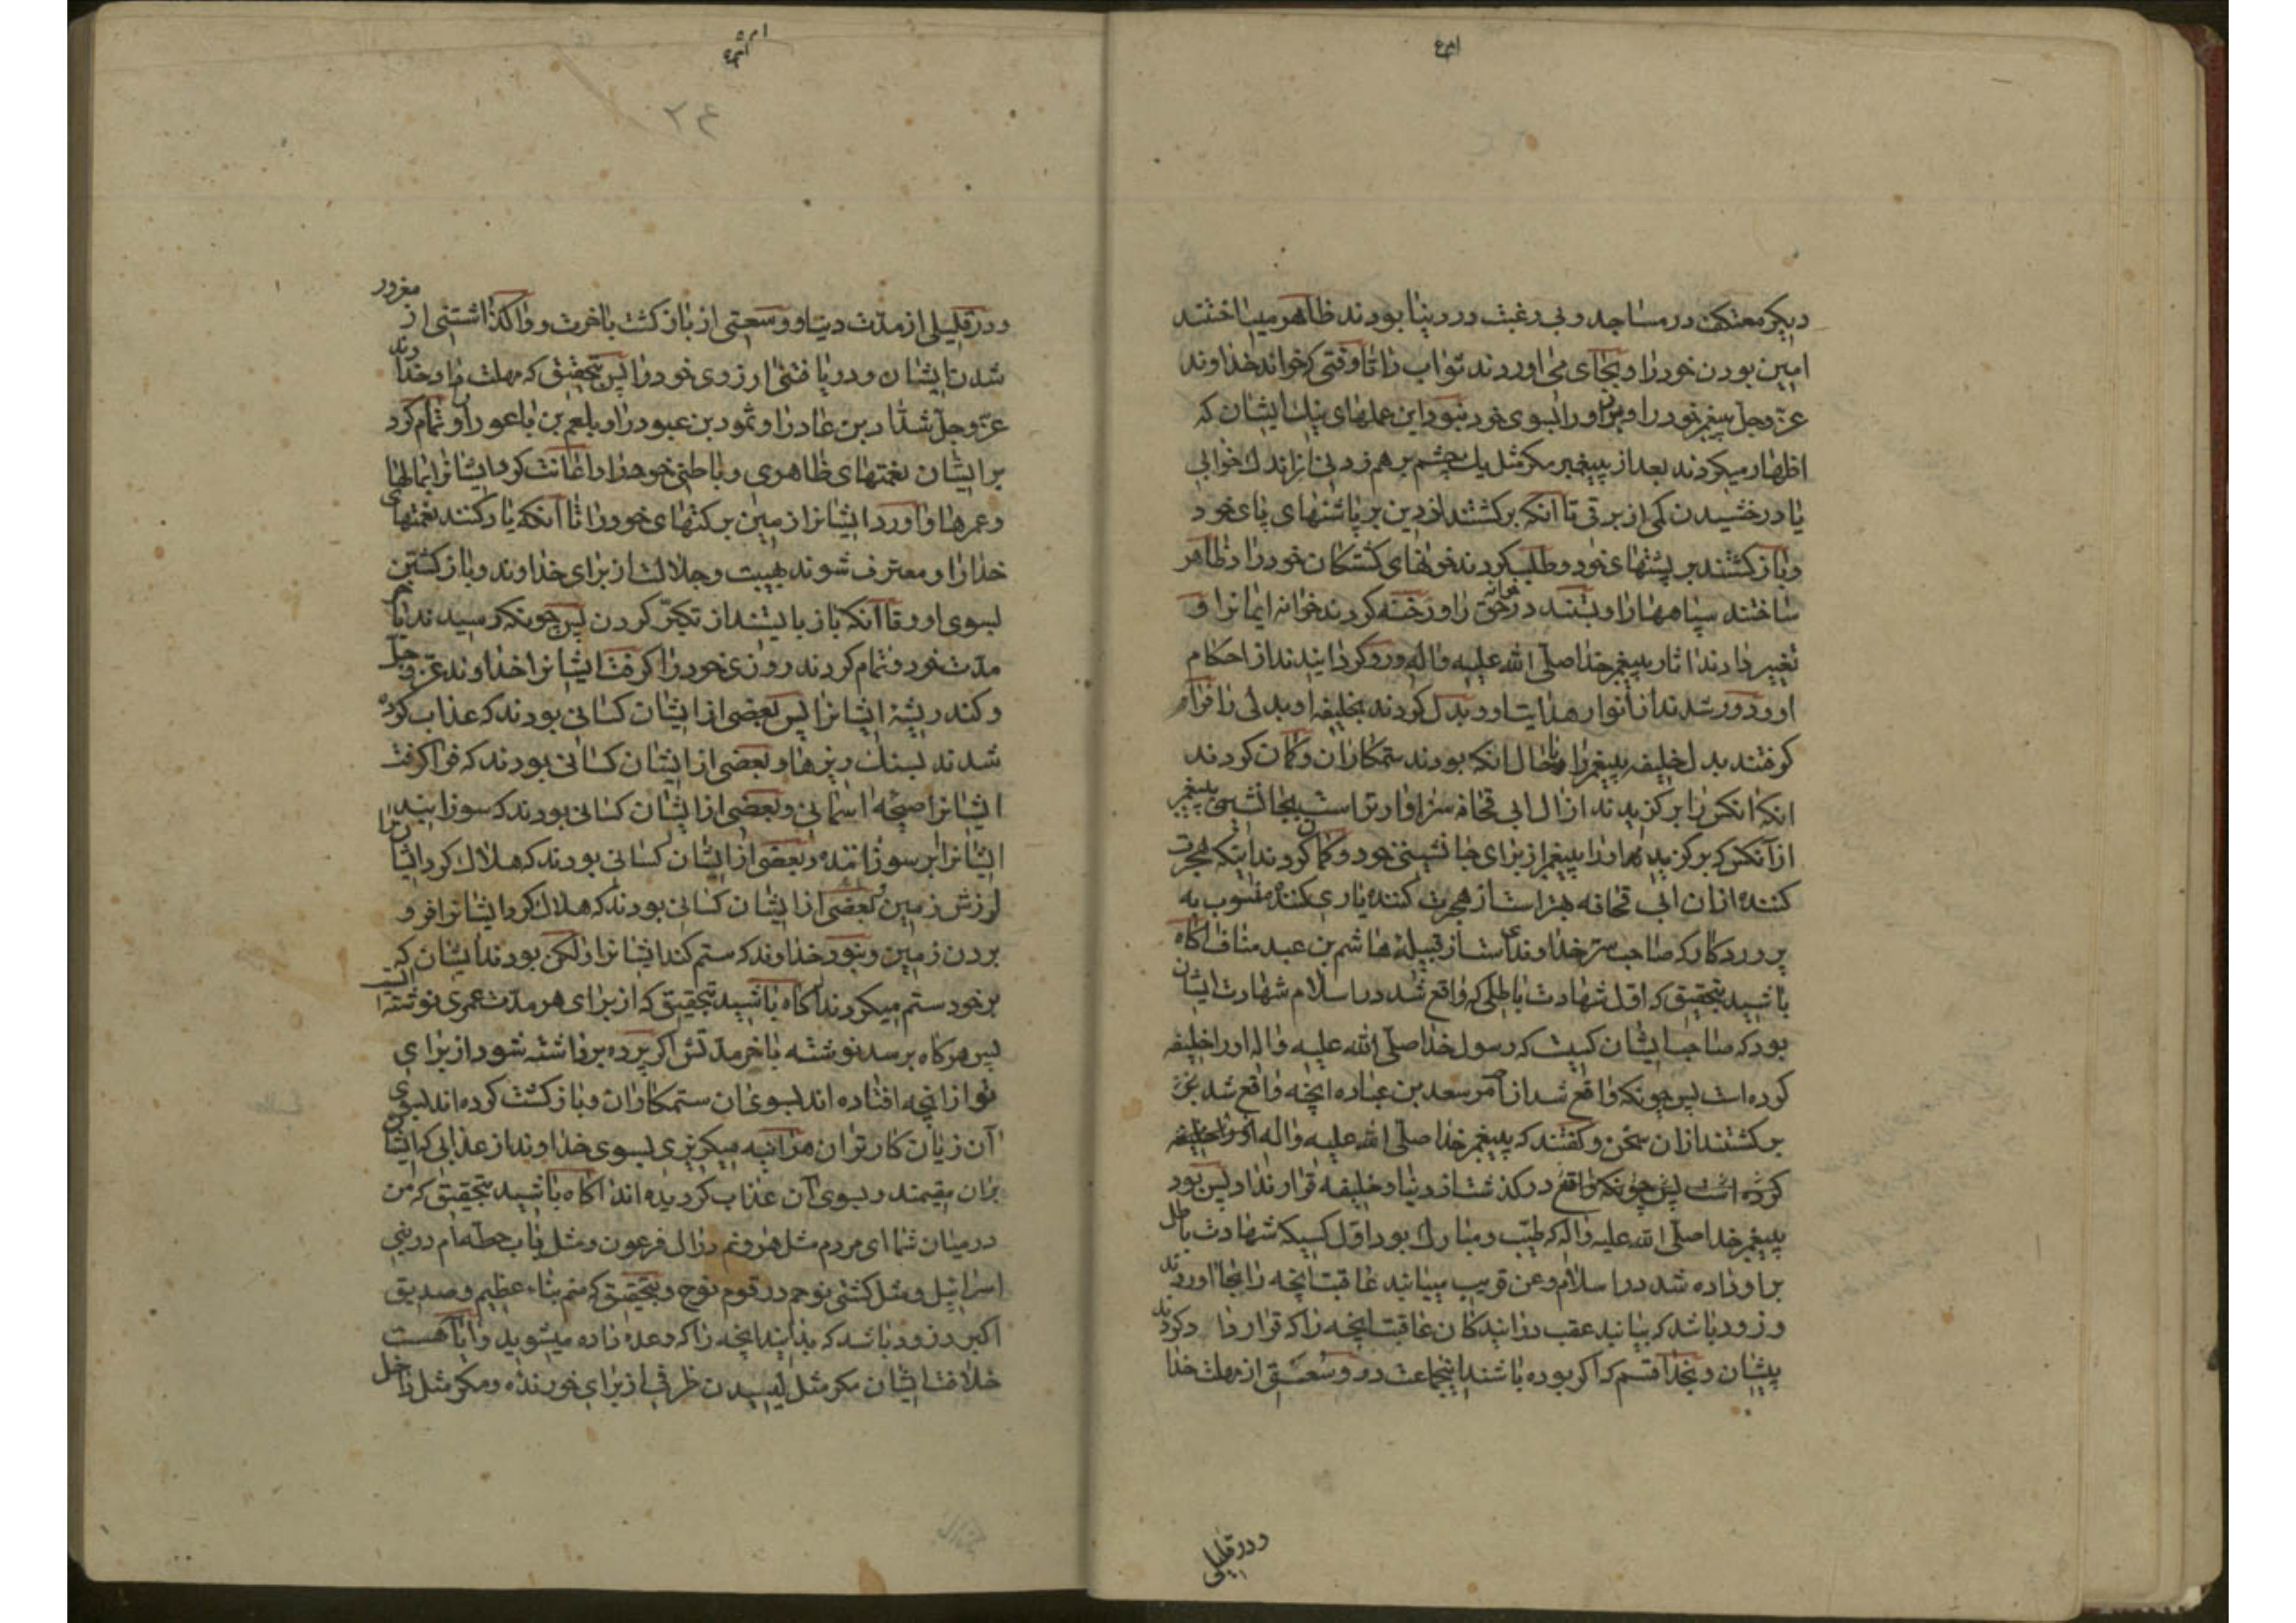 دیکر معتکف در مساجد و بی رغبت در دنیا بودند ظاهر میساختند
امین بودن خود را و بجای می اوردند ثواب را تا وقتی که خواند خداوند
عز و جل پیغمبر خود را و برد او را بسوی خود نبود این عملهای نیك ایشان که
اظهار میکردند بعد از پیغمبر مکر مثل یك چشم بر هم زدنی از اندك خوابی
یا درخشیدن کمی از برقی تا آنکه برکشتند از دین بر پاشنهای پای خود
و باز کشتند بر پشتهای خود و طلب کردند خونهای کشتکان خود را و ظاهر
ساختند سپاهها را و بستند در خانه را و رخنه کردند خوانه ایمانرا و
تغییر دادند اثار پیغمبر خدا صلی الله علیه واله و رو کردانیدند از احکام
او و دور شدند از انوار هدایت او و بدل کردند بخلیفه او بدلی را فرا
کرفتند بدل خلیفه پیغمبر را و حال انکه بودند ستمکاران و کمان کردند
انکه انکس را برکزیدند از ال ابی قحافه سزاوارتر است بجانشینی پیغمبر
از آنکس که برکزیده او را پیغمبر از برای جانشینی خود و کمان کردند اینکه هجرت
کننده از ان ابی قحافه بهتر است از هجرت کننده یاری کننده منسوب به
پروردکار که صاحب سر خداوندی است از قبیله هاشم بن عبد مناف اکاه
باشید بتحقیق که اول شهادت باطلی که واقع شد در اسلام شهادت ایشان
بود که صاحب ایشان کیست که رسول خدا صلی الله علیه واله او را خلیفه
کرده است پس چونکه واقع شد از امر سعد بن عباده انچه واقع شد
برکشتند از ان سخن و کفتند که پیغمبر خدا صلی الله علیه واله او را خلیفه
کرده است پس در کذشت از دنیا و خلیفه قرار نداد پس بود
پیغمبر خدا صلی الله علیه واله که طیب و مبارك بود اول کسیکه شهادت باطل
بر او زاده شد در اسلام و عن قریب مییابند عاقبت انچه را بجا اوردند
و زود باشد که بیابند عقب درایندکان عاقبت انچه را که قرار دادند
پیشان و بخدا قسم که اکر بوده باشند اینجماعت در وسعتی از مهلت خدا
و در قلیلی
و در قلیلی از مدت دنیا و وسعتی از باز کشت باخرت و واکذاشتنی از مغرور
شدن ایشان و دریافتن ارزوی خود را پس بتحقیق که مهلت داد خدا
عز و جل شداد بن عاد را و ثمود بن عبود را و بلعم بن باعور را و تمام کرد
بر ایشان نعمتهای ظاهری و باطنی خود را و اعانت کرد ایشانرا بمالها
و عمرها و اورد ایشانرا زمین برکتهای خود را تا آنکه یاد کنند نعمتهای
خدا را و معترف شوند بهیبت و جلالت از برای خداوند و باز کشتن
بسوی او و تا آنکه باز بایستند از تکبر کردن پس چونکه رسیدند
مدت خود و تمام کردند روزی خود را کرفت ایشانرا خداوند عز و جل
و کند ریشه ایشانرا پس بعضی از ایشان کسانی بودند که عذاب کرده
شدند بسنك ریزها و بعضی از ایشان کسانی بودند که فرا کرفت
ایشانرا صیحه اسمانی و بعضی از ایشان کسانی بودند که سوزانید
ایشانرا ابر سوزاننده و بعضی از ایشان کسانی بودند که هلاك کرد ایشانرا
لرزش زمین و بعضی از ایشان کسانی بودند که هلاك کرد ایشانرا فرو
بردن زمین و نبود خداوند که ستم کند ایشانرا و لکن بودند ایشان که
بر خود ستم میکردند اکاه باشید بتحقیق که از برای هر مدت عمری نوشته است
پس هرکاه برسد نوشته باخر مدتش اکر پرده برداشته شود از برای
تو از انچه افتاده اند بسوی ان ستمکاران و باز کشت کرده اند بسوی
آن زیان کارتران هراینه میکریزی بسوی خداوند از عذابی که ایشان
بران مقیمند و بسوی آن عذاب کردیده اند اکاه باشید بتحقیق که من
در میان شما ای مردم مثل هرونم در ال فرعون و مثل باب حطه ام در بنی
اسرائیل و مثل کشتی نوحم در قوم نوح و بتحقیق که منم نباء عظیم و صدیق
اکبر و زود باشد که بدانید انچه را که وعده داده میشوید و ایا هست
خلافت ایشان مکر مثل لیسیدن ظرفی از برای خورنده و مکر مثل داخل